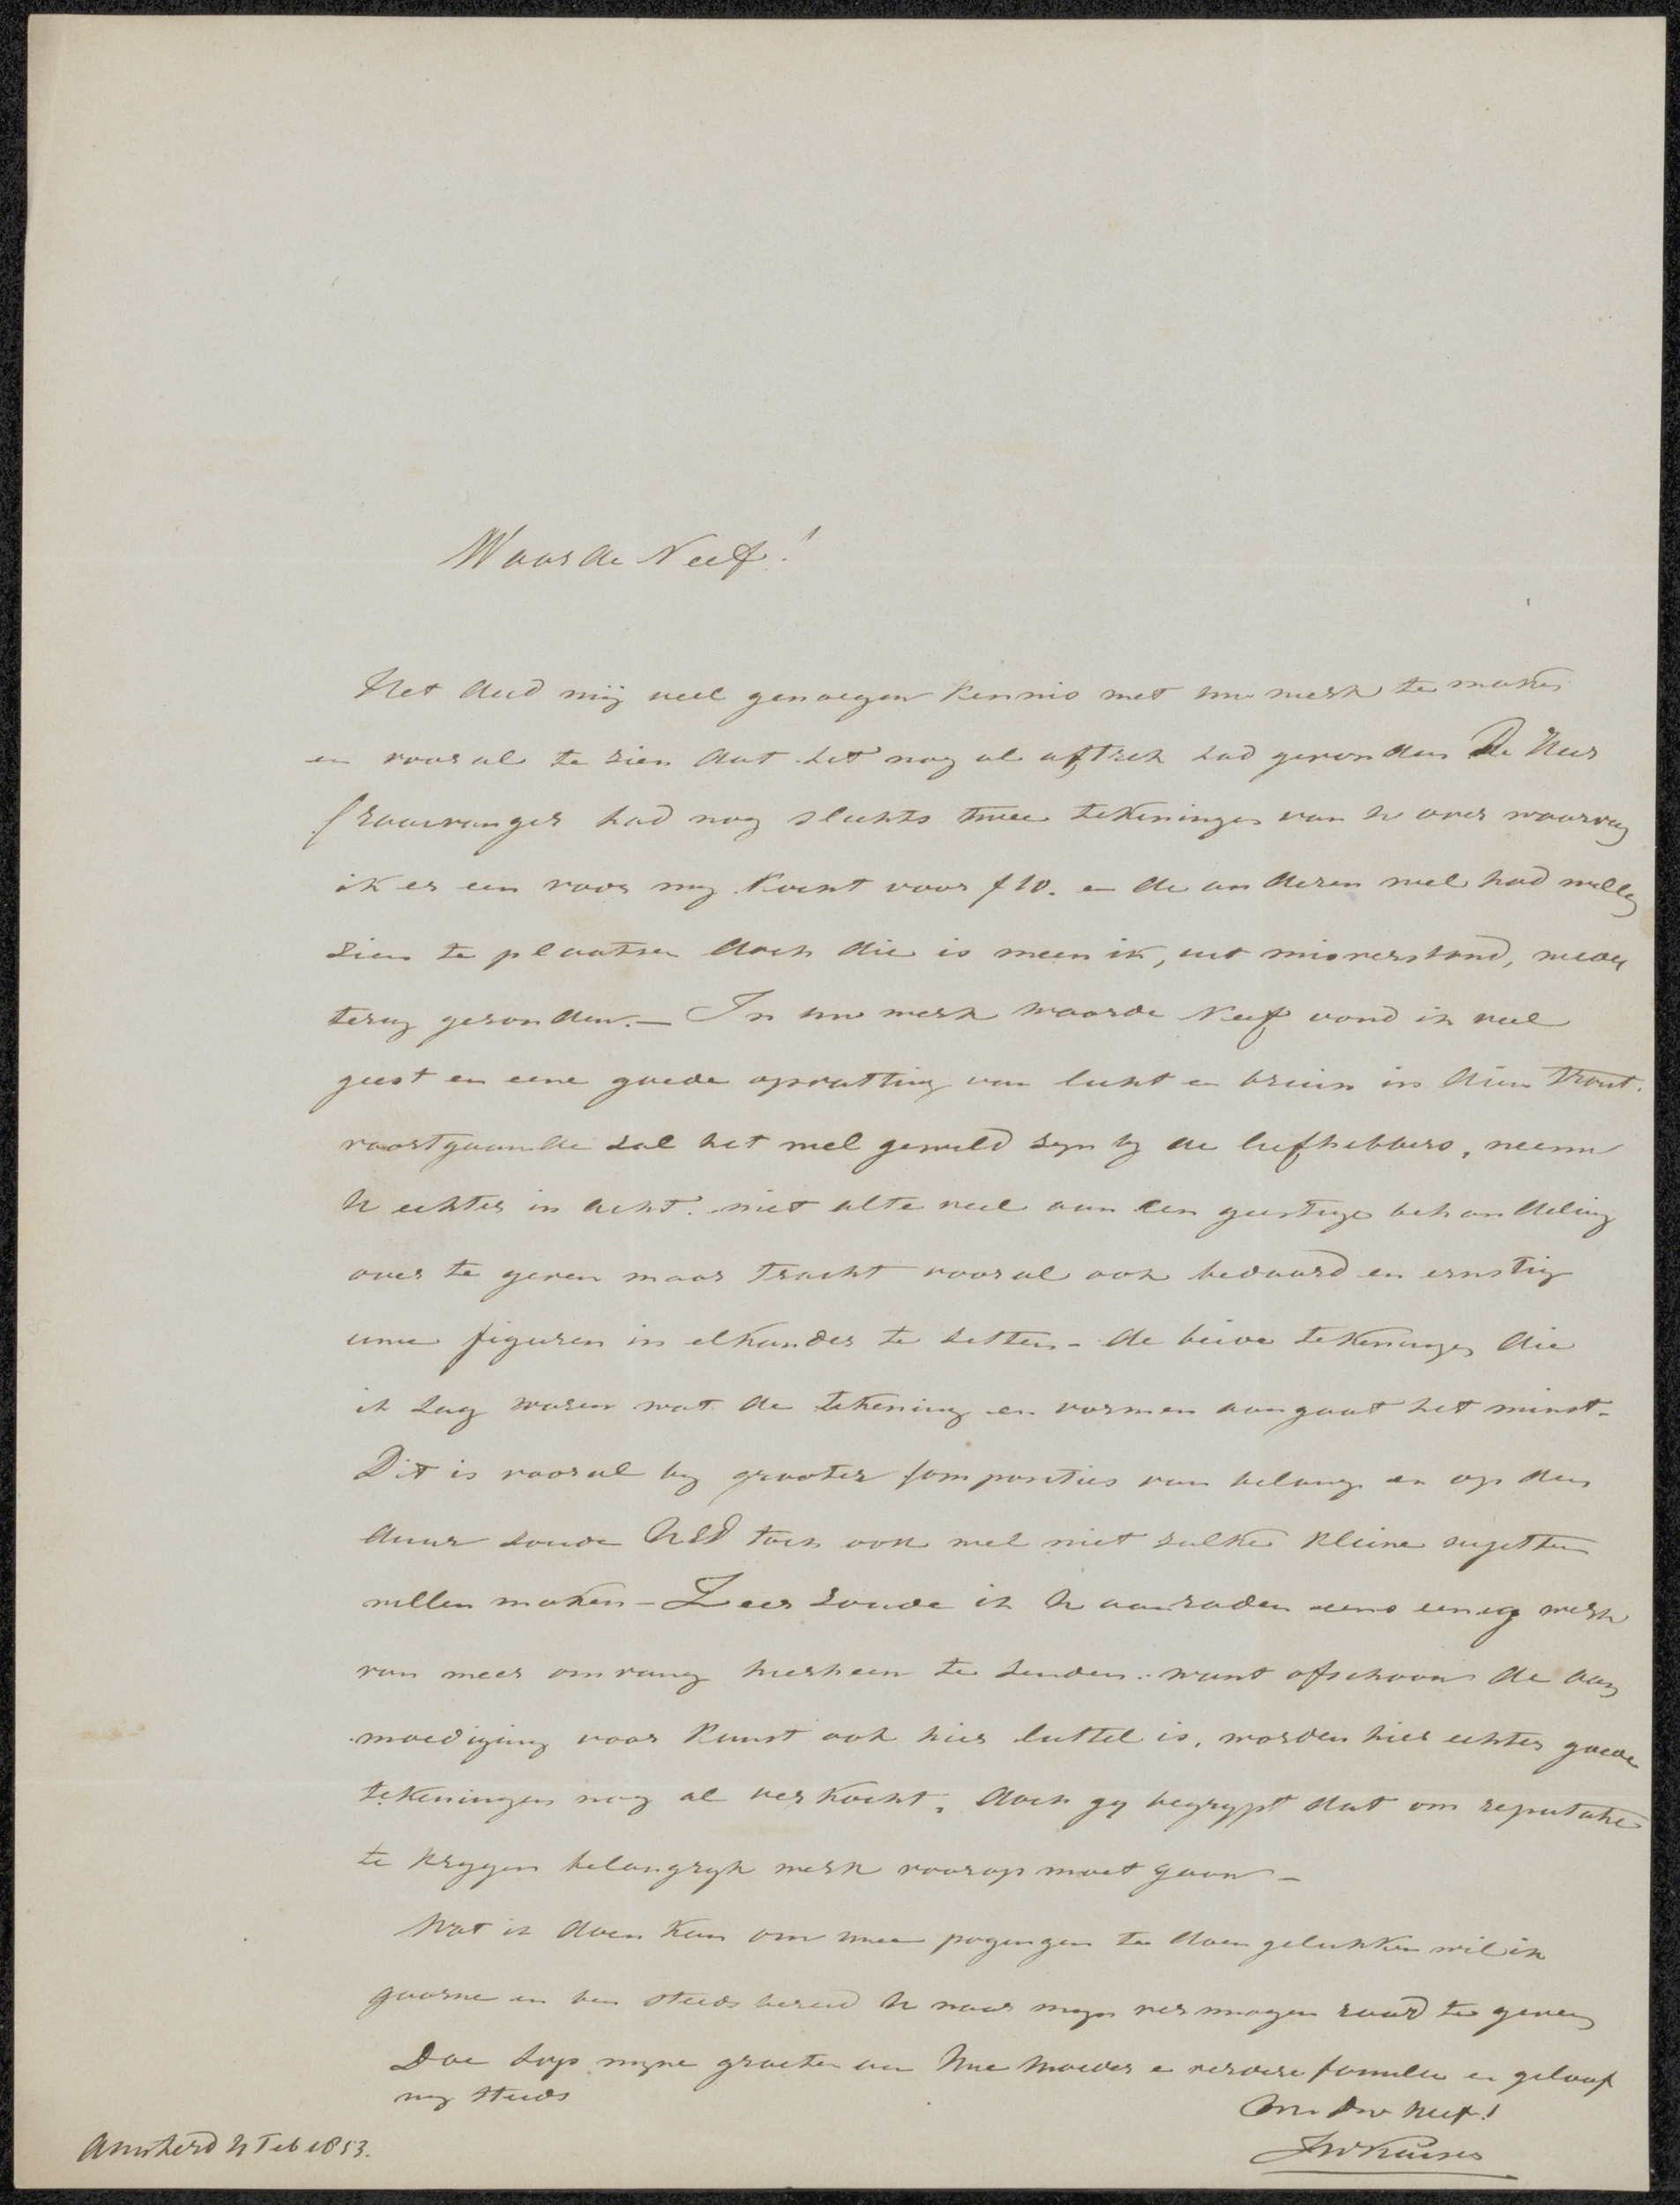 Waarde Neef!
Het deed mij veel genoegen kennis met uw werk te maken
en vooral te zien dat het nog al aftrek had gevonden De Heer
had nog slechts twee tekeningen van U over waarvan
ik er een voor my kocht voor f 10. en de anderen wel had willen
zien te plaatsen doch die is meen ik, uit misverstand, weder
terug gezonden. — In uw werk waarde Neef vond ik veel
geest en eene goede opvatting van licht en bruin in dien trant.
voortgaande zal het wel gewild zyn by de liefhebbers, neem
U echter in acht. niet alte veel aan een geestige behandeling
over te geven maar tracht vooral ook bedaard en ernstig
uwe figuren in elkander te zetten - de beide tekeningen die
ik zag waren wat de tekening en vormen aangaat het minst.
Dit is vooral by grooter composities van belang en op den
duur zoude UEd toch ook wel niet zulke kleine sujetten
willen maken - Zeer zoude ik U aanraden eens eenig werk
van meer omvang hierheen te zenden. want ofschoon de aan
moediging voor kunst ook hier luttel is, worden hier echter goede
tekeningen nog al verkocht, doch gy begrypt dat om reputatie
te krygen belangryk werk voorop moet gaan —
Wat ik doen kan om uwe pogingen te doen gelukken wil ik
gaarne en ben steeds bereid U naar myn vermogen raad te geven
Doe svp myne groeten aan Uwe Moeder en verdere familie en geloof
my steeds
Uw Dw Neef!
Amsterd Feb 1853.